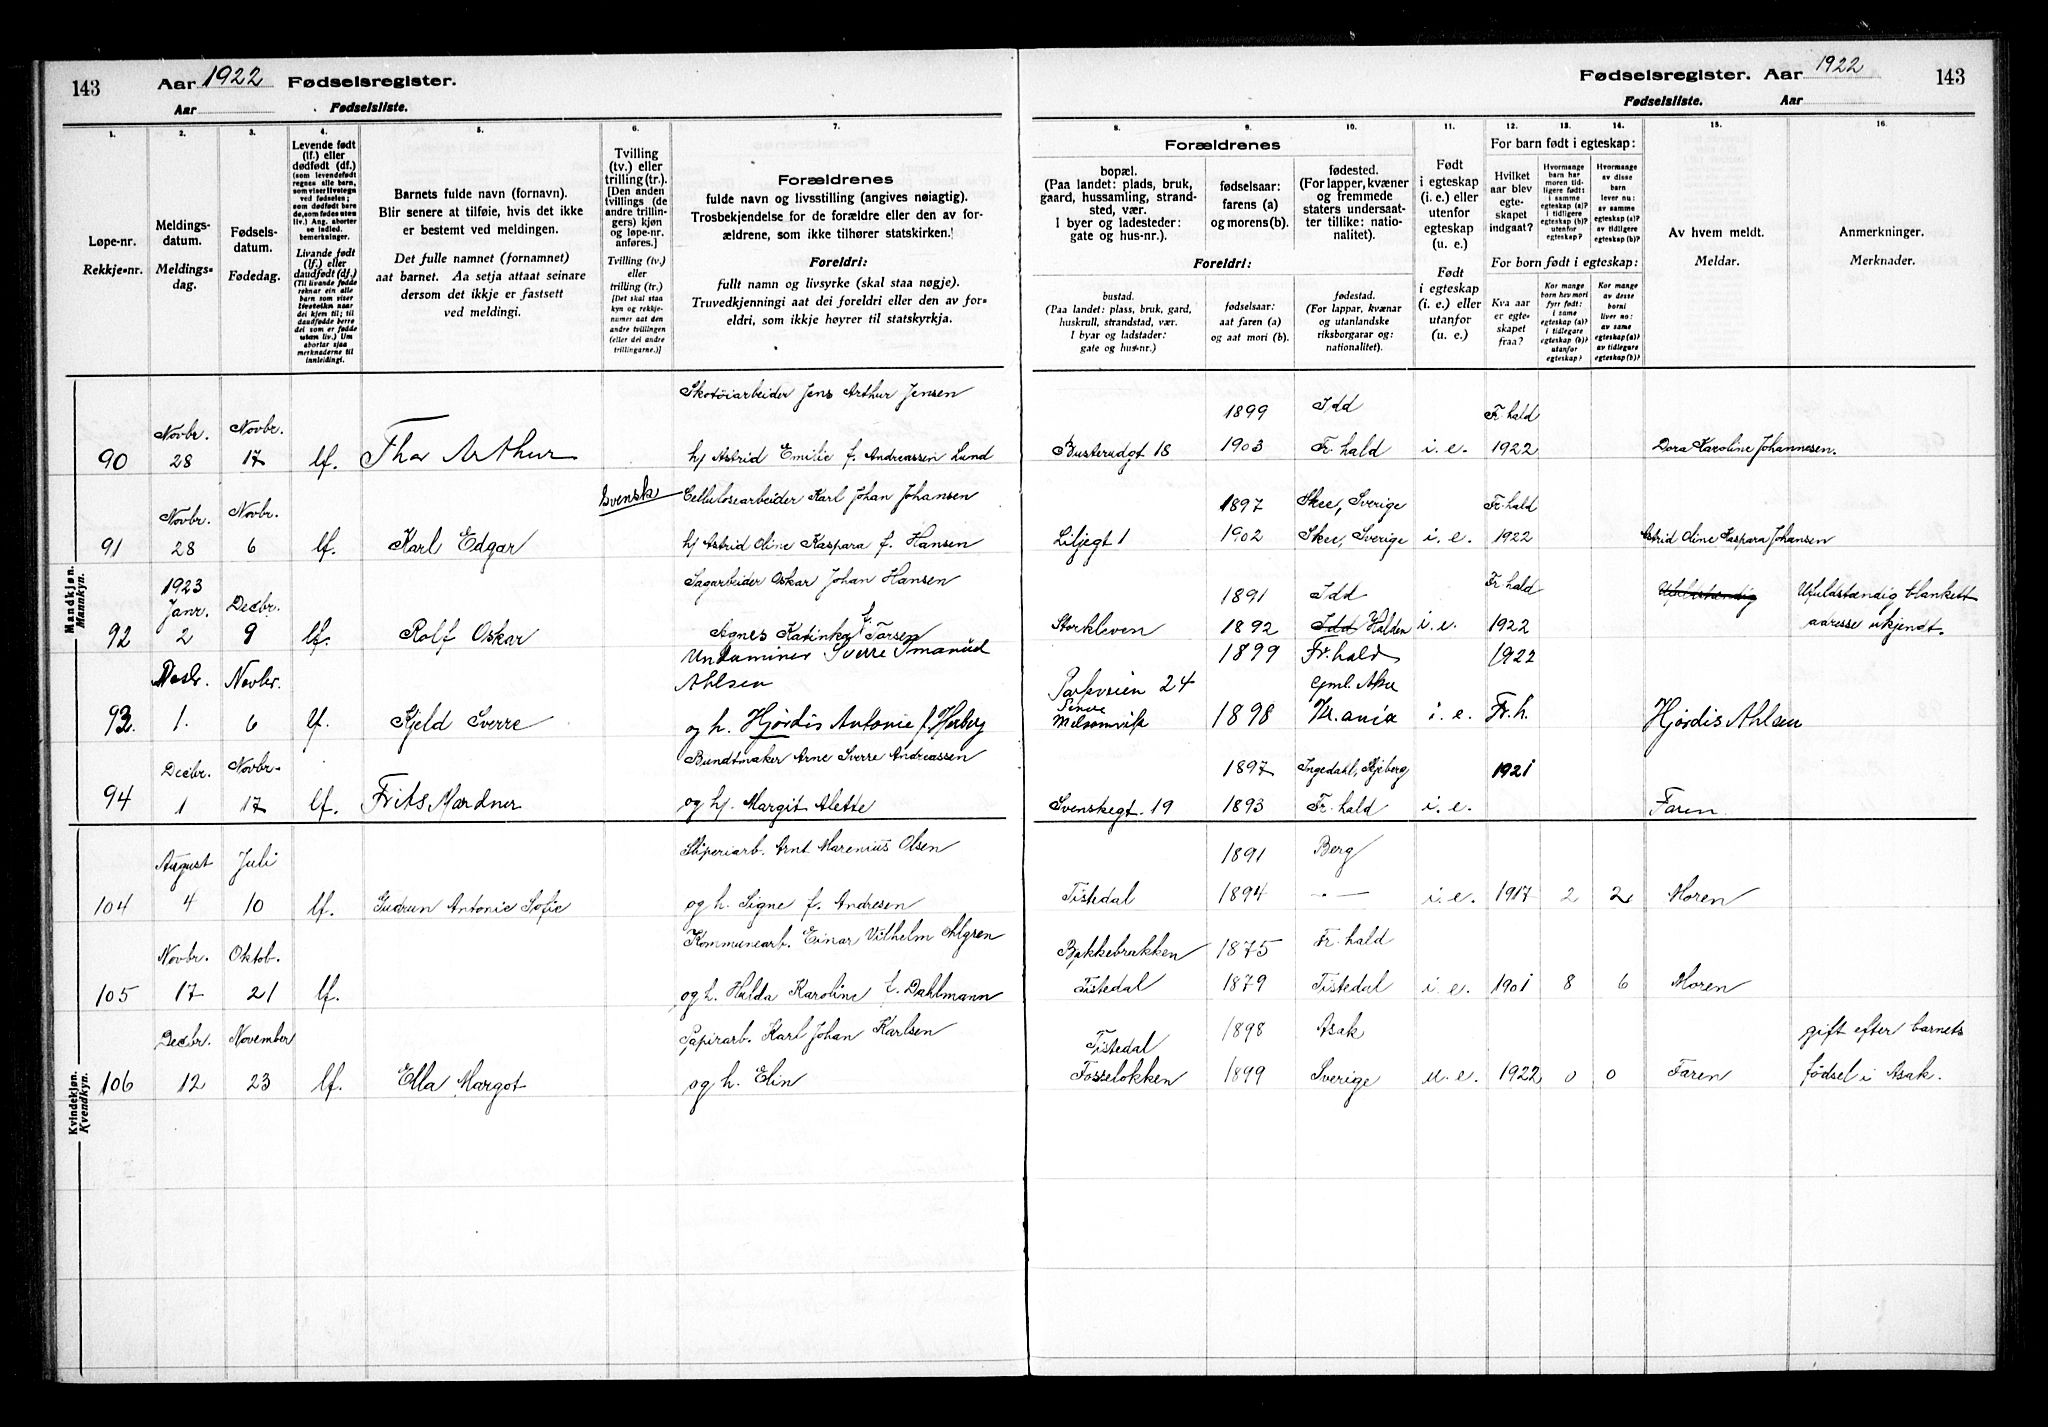 143 Aar 1922 Fødselsregister.
Aar Fødselsliste.
1. 2. 3. 4. 5. 6. 7.
Løpe-nr.
Rekkje-nr.
Meldings-
datum.
Meldings-
dag.
Fødsels-
datum.
Fødedag.
Levende født
(lf.) eller
dødfødt (df.)
(som levendefødt
regnes alle barn,
som viser livstegn
ved fødselen;
som dødfødt bare
de, som fødes uten
liv.) Ang. aborter
se indled.
bemerkninger.
Livande fødd
(lf.) eller
daudfødt (df.)
(Til livande fødde
reknar ein alle
born som viser
livsteikn naar
dei kjem til; til
daudfødde berre
dei som er fødde
utan liv.) Um
abortar sjaa
merknaderne til
innleidingi.
Barnets fulde navn (fornavn).
Blir senere at tilføie, hvis det ikke
er bestemt ved meldingen.
Det fulle namnet (fornamnet)
aat barnet. Aa setja attaat seinare
dersom det ikkje er fastsett
ved meldingi.
Tvilling
(tv.) eller
trilling (tr.).
[Den anden
tvillings (de
andre trillin-
gers) kjøn
og løpe-nr.
anføres.]
Tvilling (tv.)
eller
trilling (tr.)
[Det skal staa
kyn og rekkje-
numer aat den
andre tvillingen
(eller dei andre
trillingarne.)]
Forældrenes
fulde navn og livsstilling (angives nøiagtig).
Trosbekjendelse for de forældre eller den av for-
ældrene, som ikke tilhører statskirken.
Foreldri:
fullt namn og livsyrke (skal staa nøgje).
Truvedkjenningi aat dei foreldri eller den av for-
eldri, som ikkje høyrer til statskyrkja.
Mandkjøn.
Mannkyn.
Skotøiarbeider Jens Arthur Jensen
90 Novbr. 28 Novbr. 17 lf. Thor Arthur h/ Astrid Emilie f. Andreassen Lund
Svensk Cellulosearbeider Karl Johan Johansen
91 Novbr. 28 Novbr. 6 lf. Karl Edgar h/ Astrid Oline Kaspara f. Hansen
Sagarbeider Oskar Johan Hansen
92 1923 Janr. 2 Decbr. 9 lf. Rolf Oskar Agnes Katinka f. Torsen
Sverre Ahlsen
93. 1. Novbr. 6 lf. Kjeld Sverre og h. Hjørdis Antonie f.
Bundtmaker Arne Sverre Andreassen
94 Decbr. 1 Novbr. 17 lf. Frits Mardner og h/. Margit Alette
Kvindekjøn.
Kvendkyn.
Sliperiarb. Arnt Marenius Olsen
104 August 4 Juli 10 lf. Gudrun Antonie Sofie og h. Signe f. Andresen
Kommunearb. Einar Vilhelm Ahlgren
105 Novbr. 17 Oktob. 21 lf. og h. Hulda Karoline f. Dahlmann
Papirarb. Karl Johan Karlsen
106 Decbr. 12 November 23 lf. Ella Margot og h. Elin
Fødselsregister. Aar 1922 143
Fødselsliste. Aar
8. 9. 10. 11. 12. 13. 14. 15. 16.
Forældrenes
bopæl.
(Paa landet: plads, bruk,
gaard, hussamling, strand-
sted, vær.
I byer og ladesteder:
gate og hus-nr.).
fødselsaar:
farens (a)
og morens (b).
fødested.
(For lapper, kvæner
og fremmede
staters undersaat-
ter tillike: natio-
nalitet).
Foreldri:
bustad.
(Paa landet: plass, bruk, gard,
huskrull, strandstad, vær.
I byar og ladstader:
gate og hus-nr.)
fødselsaar:
aat faren (a)
og aat mori (b).
fødestad.
(For lappar, kvænar
og utanlandske
riksborgarar og:
nationalitet).
Født
i egteskap
(i. e.) eller
utenfor
egteskap
(u. e.)
Født
i egteskap
(i. e.) eller
utanfor
(u. e.)
For barn født i egteskap:
Hvilket
aar blev
egte-
skapet
indgaat?
Hvormange
barn har
moren tid-
ligere født:
i samme
egteskap (a)?
i tidligere
egteskap (b)?
utenfor
egteskap?
Hvormange
av disse
barn
lever nu:
av samme
egteskap (a)?
av tidligere
egteskap (b)?
For born født i egteskap:
Kva aar
er egte-
skapet
fraa?
Kor mange
born hev mori
fyrr født:
i same
egteskap (a)?
i tidlegare
egteskap (b)?
utanfor
egteskap?
Kor mange
av desse
borni
liver no:
av same
egteskap (a)?
av tidlegare
egteskap (b)?
Av hvem meldt.
Meldar.
Anmerkninger.
Merknader.
1899 Idd Fr.hald
Busterudgt 18 1903 Fr.hald i.e. 1922 Dora Karoline Johannesen.
1897 Skee, Sverige Fr.hald
Liljegt 1 1902 Skee, Sverige i.e. 1922 Astrid Oline Kaspara Johansen
1891 Idd Fr.hald Ufuldstændig blankett
Storkleven 1892 Idd Halden i.e. 1922 adresse ukjendt.
1899 Fr.hald 1922
Parkveien 24 gml. Aker
1898 Kr.ania i.e. Fr.h. Hjørdis Ahlsen
1897 Ingedahl, Skjeberg 1921
Svenskegt. 19 1893 Fr.hald i.e. Faren
1891 Berg
Tistedal 1894 — i.e. 1917 2 2 Moren
Bakkebrakken 1875 Fr.hald
Tistedal 1879 Tistedal i.e. 1901 8 6 Moren
Tistedal 1898 Asak gift efter barnets
Fosseløkken 1899 Sverige u.e. 1922 0 0 Faren fødsel i Asak.